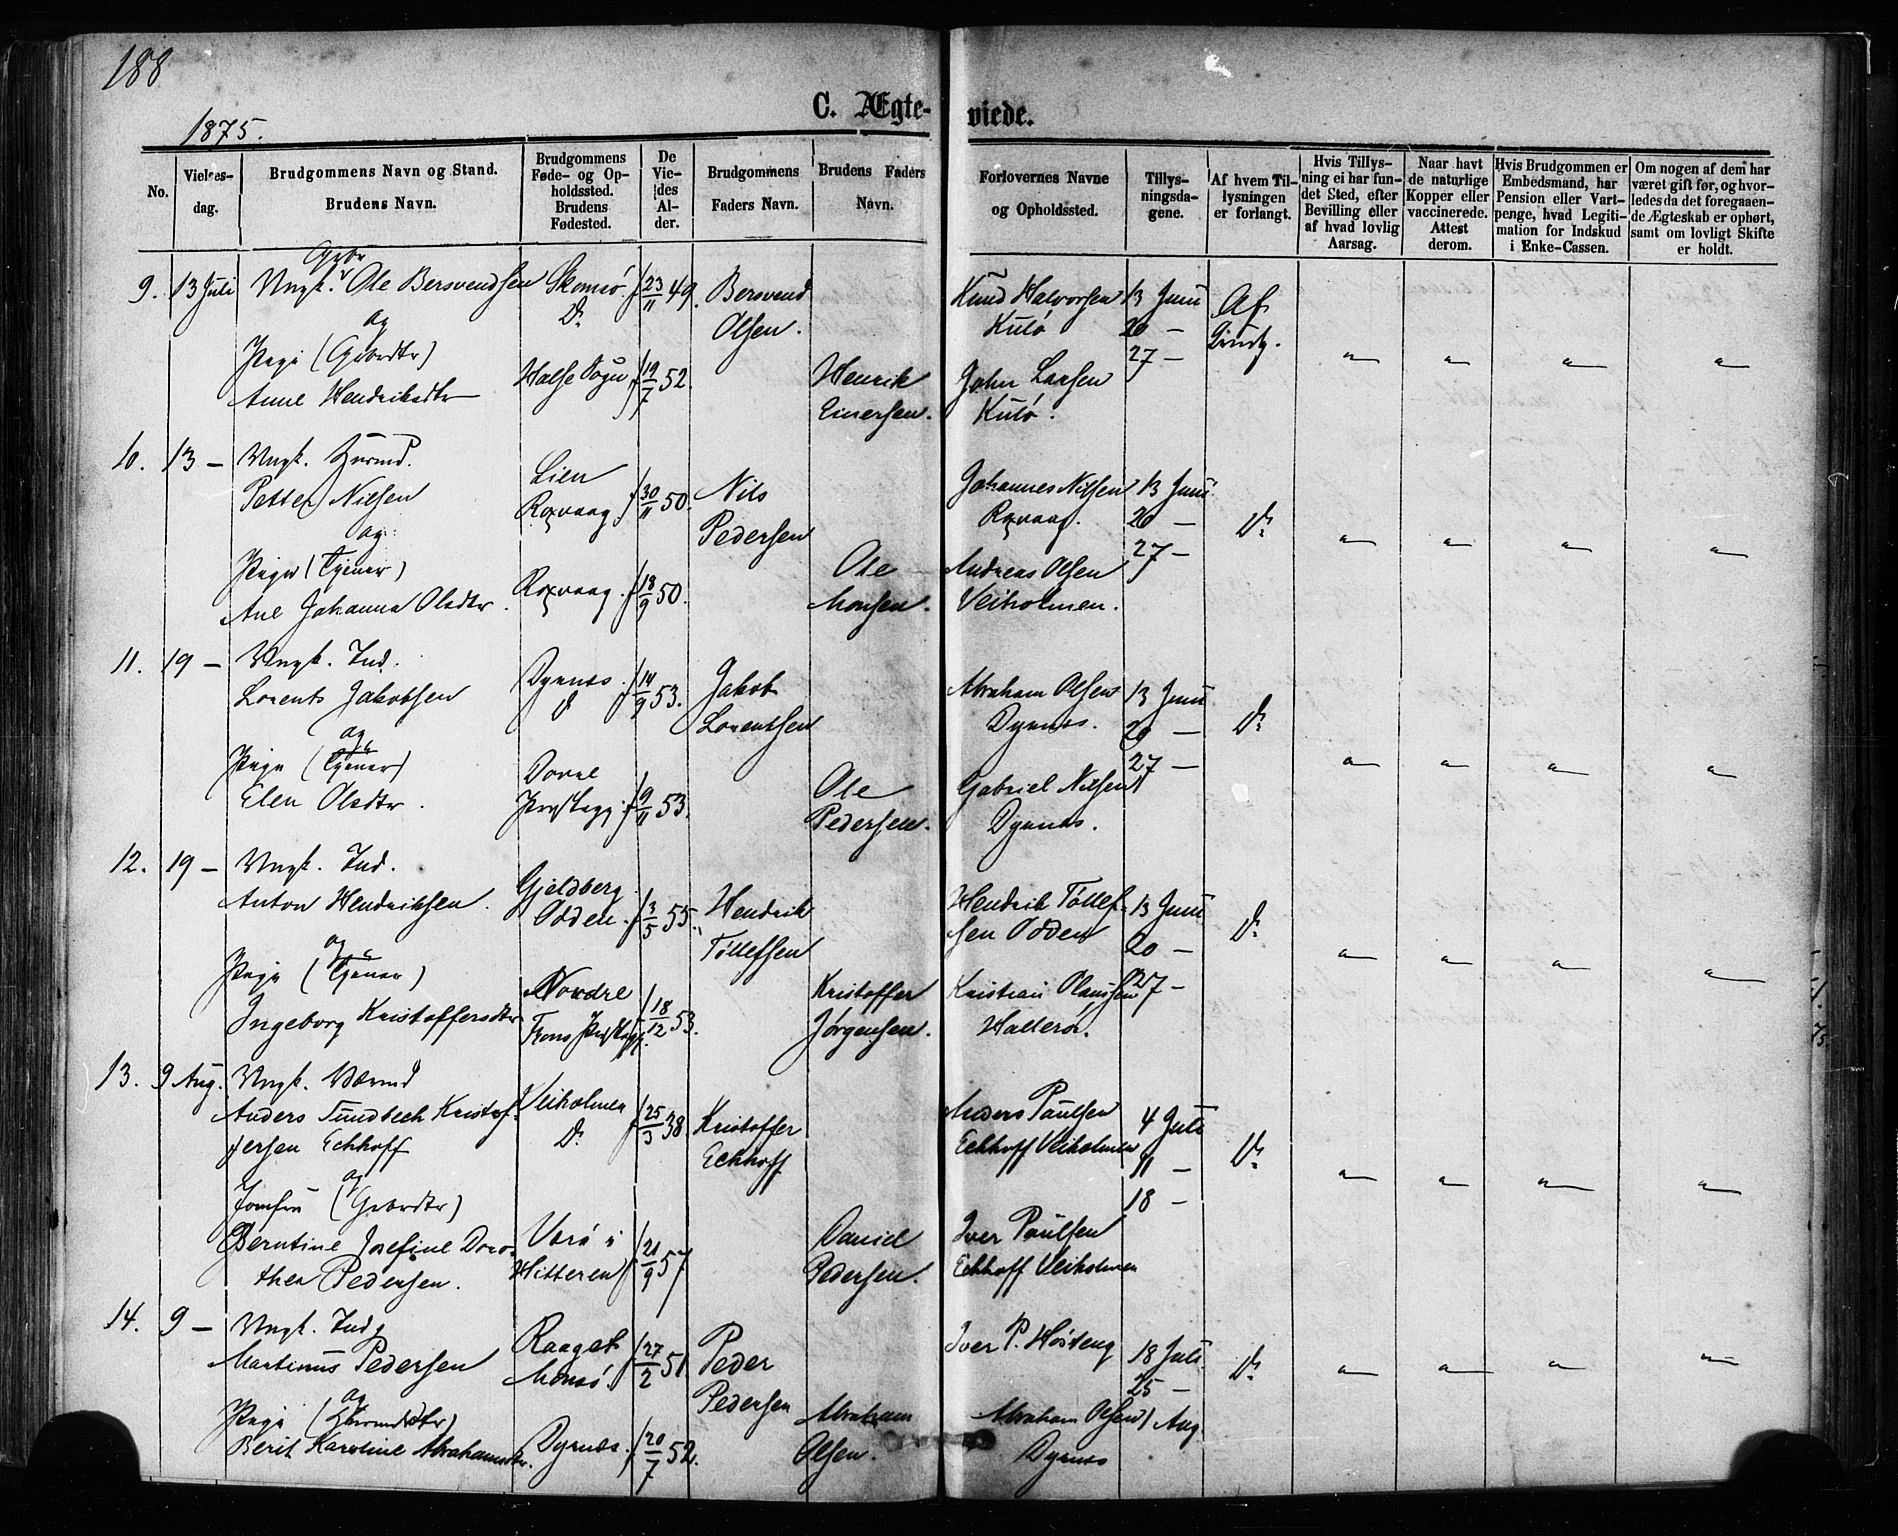 188
1875.
C. Ægte- viede.
No.
Vielses-
dag.
Brudgommens Navn og Stand.
Brudens Navn.
Brudgommens
Føde- og Op-
holdssted.
Brudens
Fødested.
De
Vie-
des
Al-
der.
Brudgommens
Faders Navn.
Brudens Faders
Navn.
Forlovernes Navne
og Opholdssted.
Tillys-
ningsda-
gene.
Af hvem Til-
lysningen
er forlangt.
Hvis Tillys-
ning ei har fun-
det Sted, efter
Bevilling eller
af hvad lovlig
Aarsag.
Naar havt
de naturlige
Kopper eller
vaccinerede.
Attest
derom.
Hvis Brudgommen er
Embedsmand, har
Pension eller Vart-
penge, hvad Legiti-
mation for Indskud
i Enke-Cassen.
Om nogen af dem har
været gift før, og hvor-
ledes da det foregaaen-
de Ægteskab er ophørt,
samt om lovligt Skifte
er holdt.
9. 13 Juli Ungk. Ole Bersvendsen
og
Pige (Gbrdtr)
Anne Hendriksdtr
Skomsø
Do
Halse Sogn
f 23/11 49.
f 19/7 52.
Bersvend
Olsen.
Henrik
Einersen.
Knud Halvorsen
Kulø
John Larsen
Kulø.
13 Juni
20 —
27 —
Af
Brudg.
10. 13 — Ungk. Husmd.
Petter Nielsen
og
Pige (Tjener)
Ane Johanna Olsdtr.
Lien
Roxvaag
Roxvaag.
f 30/11 50.
f 18/9 50.
Nils
Pedersen
Ole
Monsen.
Johannes Nilsen
Roxvaag.
Andreas Olsen
Veiholmen.
13 Juni
20 —
27 —
Do
11. 19 — Ungk. Ind.
Lorents Jakobsen
og
Pige (Tjener)
Elen Olsdtr.
Dyrnæs.
Do
Dovre
Præstegj.
f 14/9 53.
f 9/11 53.
Jakob
Lorentsen
Ole
Pedersen.
Abraham Olsen
Dyrnæs.
Gabriel Nilsen
Dyrnæs.
13 Juni
20 —
27 —
Do
12. 19 — Ungk. Ind.
Anton Hendriksen.
og
Pige (Tjener)
Ingeborg Kristoffersdtr
Gjeldberg
Odden.
Nordre
Frons Præstegj.
f 3/5 55.
f 18/12 53.
Hendrik
Tøllefsen
Kristoffer
Jørgensen.
Hendrik Tøllef-
sen Odden
Kristian Olaussen
Hallerø.
13 Juni
20 —
27 —
Do
13. 9 Aug. Ungk.
Anders Sundbech Kristof-
fersen Eckhoff
og
Jomfru (Gbrdtr)
Berntine Josefine Doro-
thea Pedersen.
Veiholmen
Do
Hitteren
f 25/3 38
f 21/9 57
Kristoffer
Eckhoff
Daniel
Pedersen.
Anders Paulsen
Eckhoff Veiholmen
Iver Paulsen
Eckhoff Veiholmen
4 Juli
11 —
18 —
Do
14. 9 — Ungk. Inds
Martinus Pedersen
og
Pige (Husmdsdtr)
Berit Karoline Abrahamsdtr.
Dyrnæs.
f 27/2 51.
f 20/7 52.
Peder
Pedersen
Abraham
Olsen.
Iver P.
Abraham Olsen
Dyrnæs
18 Juli
25 —
1 Aug.
Do